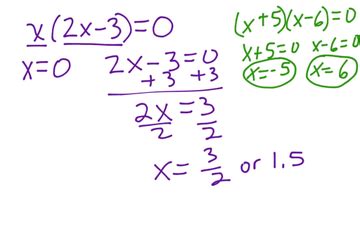 x(2x-3)=0
x=0   2x-3=0
+3 +3
2x = 3
2   2
x= 3/2 or 1.5
(x+5)(x-6)=0
x+5=0   x-6=0
x=-5   x=6